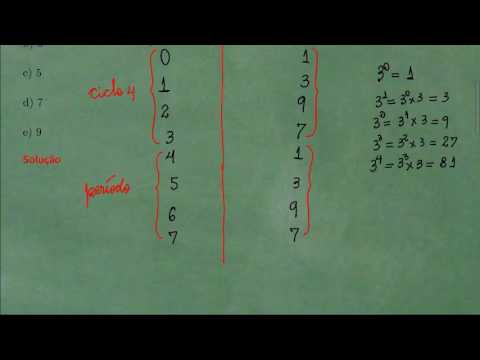 c) 5
d) 7
e) 9
Solução
ciclo 4
período
0 1
1 3
2 9
3 7
4 1
5 3
6 9
7 7
3⁰ = 1
3¹ = 3⁰ x 3 = 3
3⁰ = 3¹ x 3 = 9
3³ = 3² x 3 = 27
3⁴ = 3³ x 3 = 81